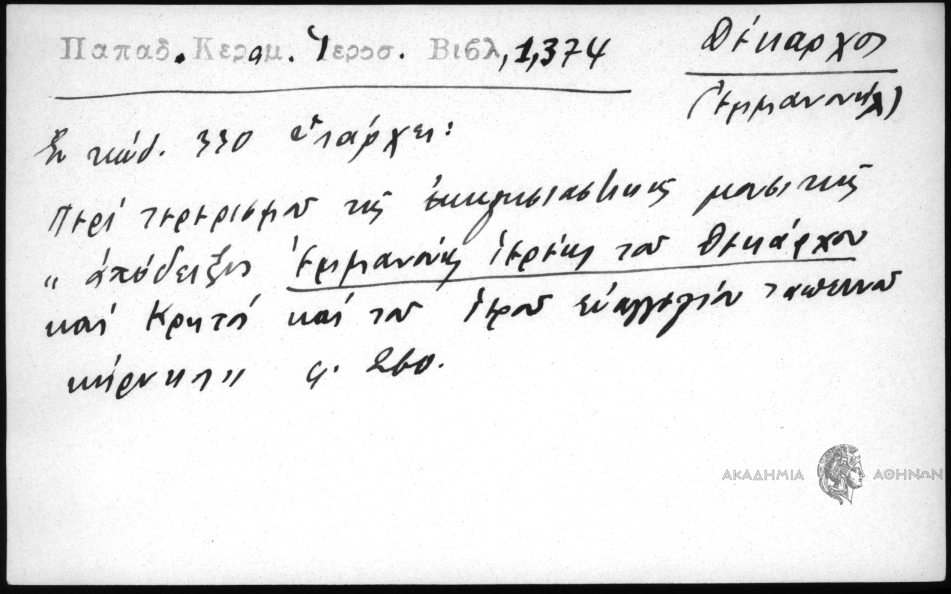 Παπαδ. Κεραμ. Ἱεροσ. Βιβλ, 1,374
Θηκαρχος
(Ἐμμανουήλ)
Ἐν κώδ. 330 ὑπάρχει:
Περί τερερισμοῦ τῆς ἐκκλησιαστικῆς μουσικῆς
" ἀπόδειξις Ἐμμανουήλ ἱερέως τοῦ Θηκάρχου
καί Κρητός καί τοῦ ἱεροῦ εὐαγγελίου ταπεινοῦ
κήρυκος" φ. 260.
ΑΚΑΔΗΜΙΑ ΑΘΗΝΩΝ